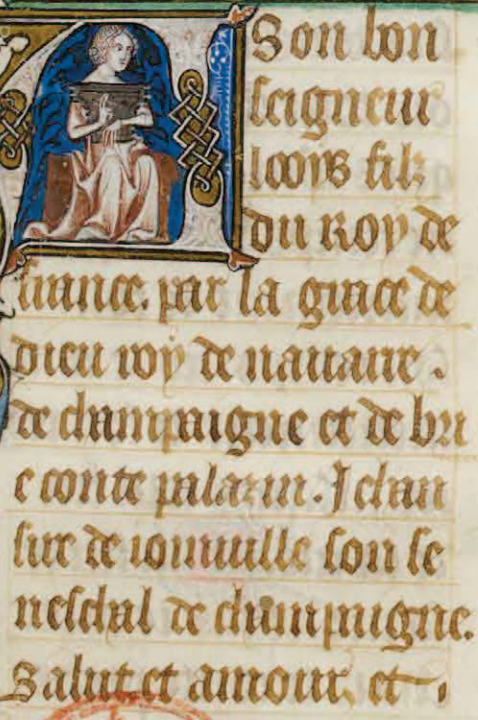 A son bon
seigneur
looys filz
du roy de
france. par la grace de
dieu roy de nauarre.
de champaigne et de bri
e conte palazin. Jehan
sire de ioinuille son se
neschal de champaigne.
Salut et amour, et